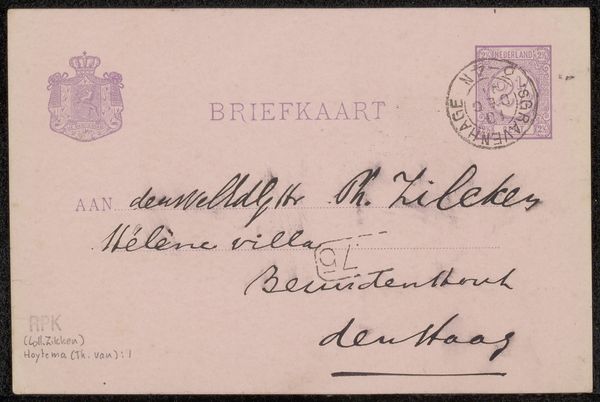 NEDERLAND
2½ 2½
'SGRAVENHAGE
BRIEFKAART
AAN den Weled. Hr Ph. Zilcken
Hélène villa
Bezuidenhout
den Haag
RPK
(Coll. Zilcken)
Hoytema (Th. van): 1